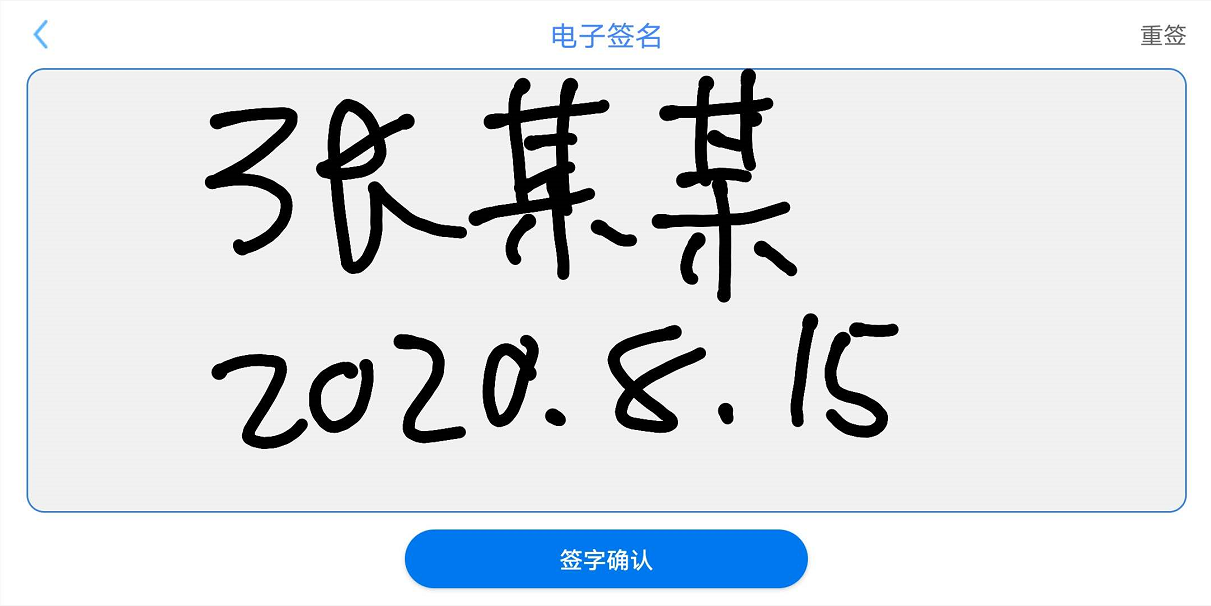 电子签名 重签
张某某
2020.8.15
签字确认